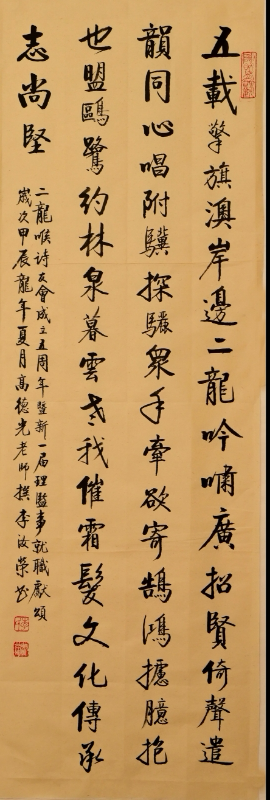 五載擎旗澳岸邊二龍吟嘯廣招賢倚聲遣
韻同心唱附驥探驪衆手牽欲寄鵠鴻攄臆抱
也盟鷗鷺約林泉暮雲老我催霜髮文化傳承
志尚堅
二龍喉詩友會成立五周年暨新一届理監事就職獻頌
歲次甲辰龍年夏月高德光老師撰李汝榮書